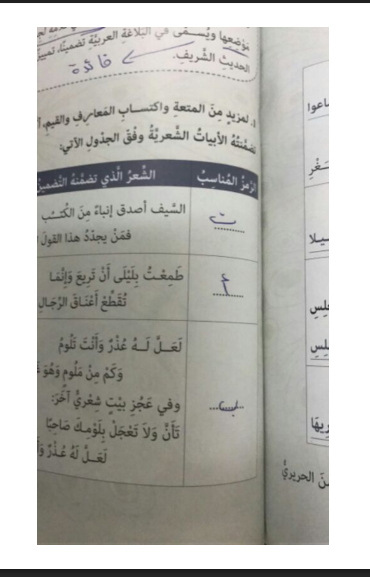 مَوْضعها ويُسمَّى في البَلاغَةِ العربيَّةِ تضمينًا،
الحديثِ الشَّريفِ.
فائدة
لمزيدٍ مِنَ المتعةِ واكتسابِ المَعارفِ والقيمِ،
الأبياتُ الشِّعريَّةُ وفْقَ الجدْولِ الآتي:
الرّمزُ المُناسبُ
الشّعرُ الَّذي تضمَّنهُ التَّضمينُ
السَّيف أصدق إنباءً مِنَ الكُتبِ
فمَنْ يجددُ هذا القول
ت
طَمِعْتُ بِلَيْلَى أَنْ تَرِيعَ وَإِنَّمَا
تُقَطِّعُ أَعْنَاقَ الرِّجَالِ
أ
لَعَلَّ لَهُ عُذْرٌ وَأَنْتَ تَلُومُ
وَكَمْ مِنْ مَلُومٍ وَهْوَ
وفي عَجُزِ بيْتٍ شِعْريٍّ آخَرَ:
تَأَنَّ وَلاَ تَعْجَلْ بِلَوْمِكَ صَاحِبًا
لَعَلَّ لَهُ عُذْرٌ
ب
يلا
مِنَ الحريريِّ